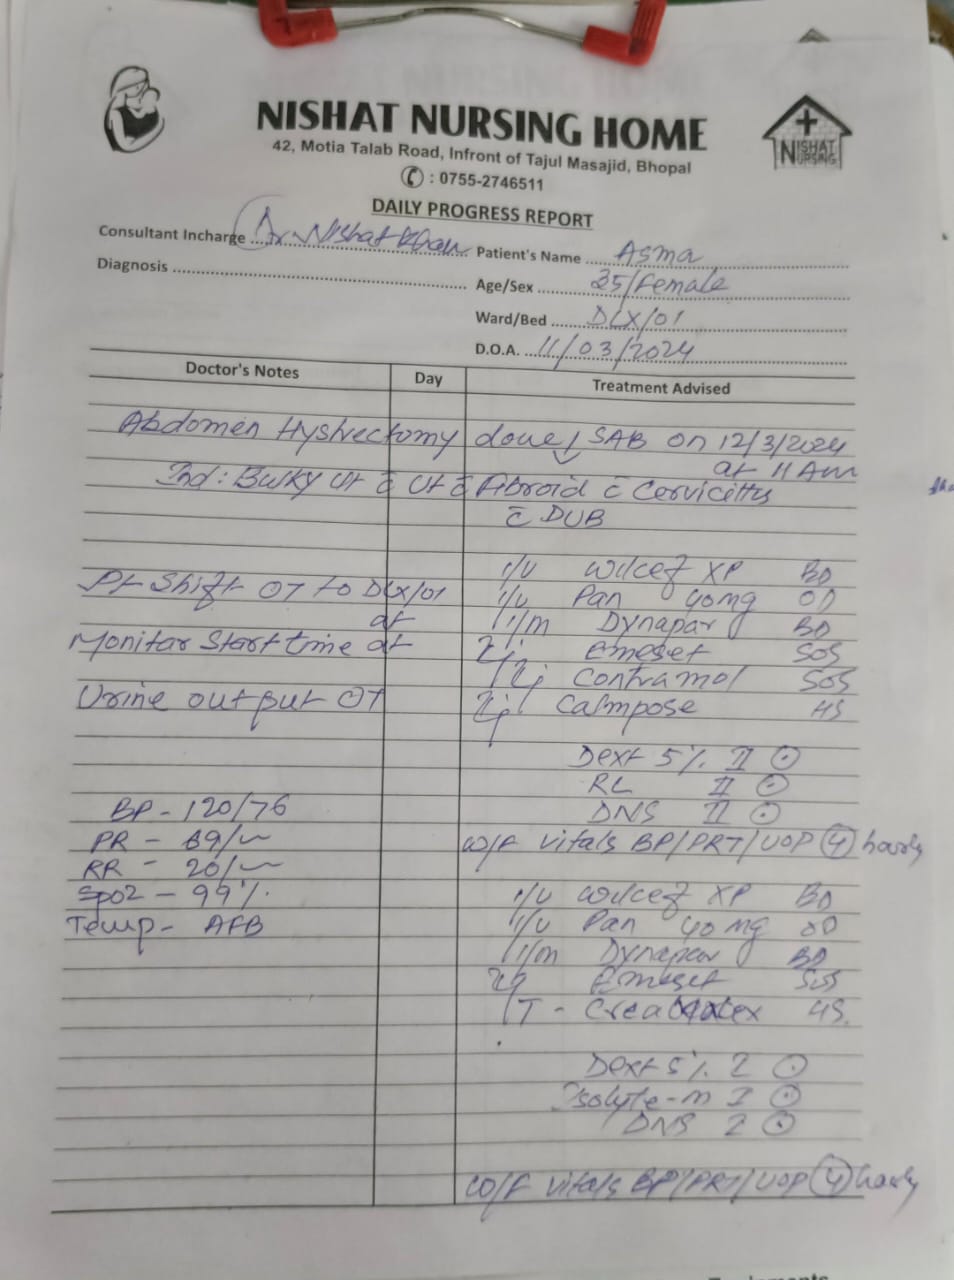 NISHAT NURSING HOME
42, Motia Talab Road, Infront of Tajul Masajid, Bhopal
: 0755-2746511
NISHAT
NURSING
DAILY PROGRESS REPORT
Consultant Incharge Dr. Nishat Khan Patient's Name Asma
Diagnosis
Age/Sex 35/Female
Ward/Bed DLX/01
D.O.A. 11/03/2024
Doctor's Notes Day Treatment Advised
Abdomen Hystrectomy done SAB on 12/3/2024
at 11 Am
Ind: Bulky Ut c̄ Ut c̄ Fibroid c̄ Cervicitis
c̄ DUB
I/V Wilcef XP BD
Pt Shift OT to DLX/01 I/V Pan 40mg OD
at I/M Dynapar BD
Monitar Start time at Inj Emeset SOS
Inj Contramol SOS
Urine output OT Inj Calmpose HS
Dext 5% II
RL II
BP - 120/76 DNS II
PR - 89/~ W/F vitals BP/PRT/UOP 4 hourly
RR - 20/~
SpO2 - 99%. I/V Wilcef XP BD
Temp - AFB I/V Pan 40 mg OD
I/M Dynapar BD
Inj Emeset SOS
T - HS.
Dext 5% I
Isolyte-m I
DNS I
W/F vitals BP/PRT/UOP 4 hourly